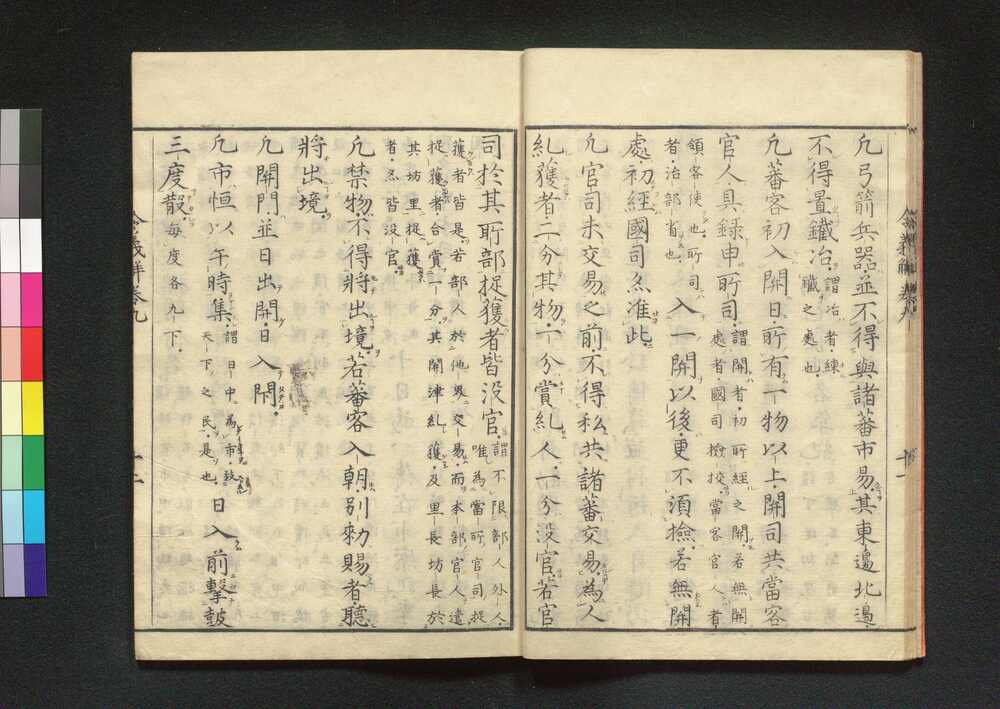 凢弓箭兵器並不得與諸蕃市易其東邊北邊
不得置鐵冶謂冶者練鐵之處也
凢蕃客初入関日所有一物以上関司共當客
官人具録申所司謂関者初所経之関若無関処者國司撿挍當客官人者
領客使也所司者治部省也入一関以後更不須撿若無関
處初経國司亦准此
凢官司未交易之前不得私共諸蕃交易為人
糺獲者二分其物一分賞糺人一分没官若官
司於其所部捉獲者皆没官謂不限部人外人唯為當所官司捉
獲者皆是若部人於他界交易而本部官人遣
捉獲者合賞一分其関津糺獲及里長坊長於
其坊里捉獲者亦皆没官
凢禁物不得將出境若蕃客入朝別勅賜者聽
將出境
凢関門並日出開日入閇
凢市恒以午時集謂日中為市致天下之民是也日入前擊鼓
三度散每度各九下
令義解卷九
十一
令義解卷九
十二